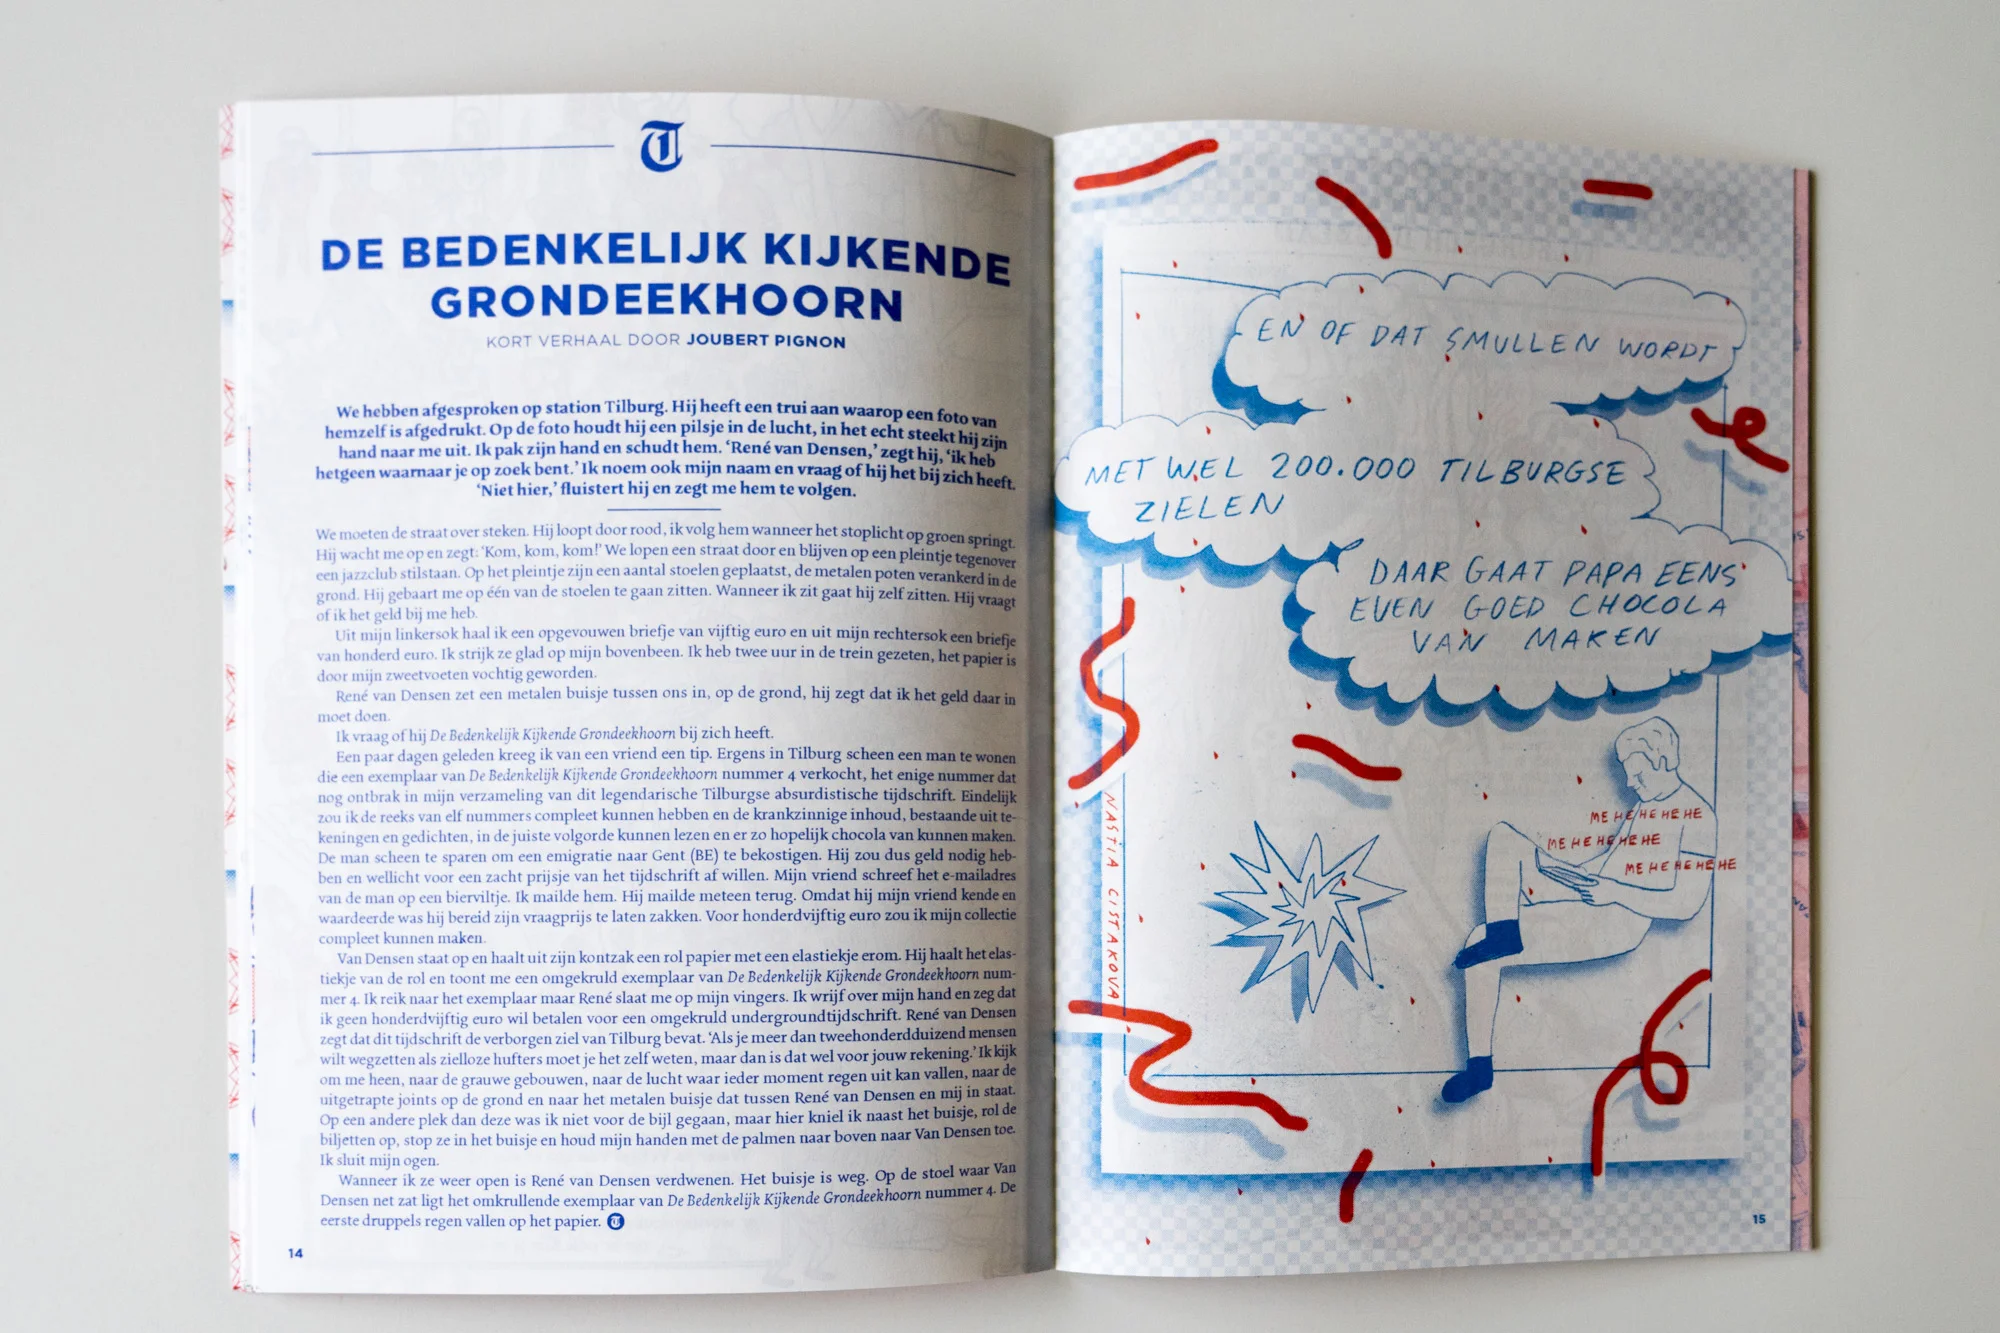 T
DE BEDENKELIJK KIJKENDE
GRONDEEKHOORN
KORT VERHAAL DOOR JOUBERT PIGNON
We hebben afgesproken op station Tilburg. Hij heeft een trui aan waarop een foto van
hemzelf is afgedrukt. Op de foto houdt hij een pilsje in de lucht, in het echt steekt hij zijn
hand naar me uit. Ik pak zijn hand en schudt hem. ‘René van Densen,’ zegt hij, ‘ik heb
hetgeen waarnaar je op zoek bent.’ Ik noem ook mijn naam en vraag of hij het bij zich heeft.
‘Niet hier,’ fluistert hij en zegt me hem te volgen.
We moeten de straat over steken. Hij loopt door rood, ik volg hem wanneer het stoplicht op groen springt.
Hij wacht me op en zegt: ‘Kom, kom, kom!’ We lopen een straat door en blijven op een pleintje tegenover
een jazzclub stilstaan. Op het pleintje zijn een aantal stoelen geplaatst, de metalen poten verankerd in de
grond. Hij gebaart me op één van de stoelen te gaan zitten. Wanneer ik zit gaat hij zelf zitten. Hij vraagt
of ik het geld bij me heb.
Uit mijn linkersok haal ik een opgevouwen briefje van vijftig euro en uit mijn rechtersok een briefje
van honderd euro. Ik strijk ze glad op mijn bovenbeen. Ik heb twee uur in de trein gezeten, het papier is
door mijn zweetvoeten vochtig geworden.
René van Densen zet een metalen buisje tussen ons in, op de grond, hij zegt dat ik het geld daar in
moet doen.
Ik vraag of hij De Bedenkelijk Kijkende Grondeekhoorn bij zich heeft.
Een paar dagen geleden kreeg ik van een vriend een tip. Ergens in Tilburg scheen een man te wonen
die een exemplaar van De Bedenkelijk Kijkende Grondeekhoorn nummer 4 verkocht, het enige nummer dat
nog ontbrak in mijn verzameling van dit legendarische Tilburgse absurdistische tijdschrift. Eindelijk
zou ik de reeks van elf nummers compleet kunnen hebben en de krankzinnige inhoud, bestaande uit te-
keningen en gedichten, in de juiste volgorde kunnen lezen en er zo hopelijk chocola van kunnen maken.
De man scheen te sparen om een emigratie naar Gent (BE) te bekostigen. Hij zou dus geld nodig heb-
ben en wellicht voor een zacht prijsje van het tijdschrift af willen. Mijn vriend schreef het e-mailadres
van de man op een bierviltje. Ik mailde hem. Hij mailde meteen terug. Omdat hij mijn vriend kende en
waardeerde was hij bereid zijn vraagprijs te laten zakken. Voor honderdvijftig euro zou ik mijn collectie
compleet kunnen maken.
Van Densen staat op en haalt uit zijn kontzak een rol papier met een elastiekje erom. Hij haalt het elas-
tiekje van de rol en toont me een omgekruld exemplaar van De Bedenkelijk Kijkende Grondeekhoorn num-
mer 4. Ik reik naar het exemplaar maar René slaat me op mijn vingers. Ik wrijf over mijn hand en zeg dat
ik geen honderdvijftig euro wil betalen voor een omgekruld undergroundtijdschrift. René van Densen
zegt dat dit tijdschrift de verborgen ziel van Tilburg bevat. ‘Als je meer dan tweehonderdduizend mensen
wilt wegzetten als zielloze hufters moet je het zelf weten, maar dan is dat wel voor jouw rekening.’ Ik kijk
om me heen, naar de grauwe gebouwen, naar de lucht waar ieder moment regen uit kan vallen, naar de
uitgetrapte joints op de grond en naar het metalen buisje dat tussen René van Densen en mij in staat.
Op een andere plek dan deze was ik niet voor de bijl gegaan, maar hier kniel ik naast het buisje, rol de
biljetten op, stop ze in het buisje en houd mijn handen met de palmen naar boven naar Van Densen toe.
Ik sluit mijn ogen.
Wanneer ik ze weer open is René van Densen verdwenen. Het buisje is weg. Op de stoel waar Van
Densen net zat ligt het omkrullende exemplaar van De Bedenkelijk Kijkende Grondeekhoorn nummer 4. De
eerste druppels regen vallen op het papier. T
14
EN OF DAT SMULLEN WORDT
MET WEL 200.000 TILBURGSE
ZIELEN
DAAR GAAT PAPA EENS
EVEN GOED CHOCOLA
VAN MAKEN
ME HE HE HE HE
ME HE HE HE HE
ME HE HE HE HE
NASTIA CISTAKOVA
15